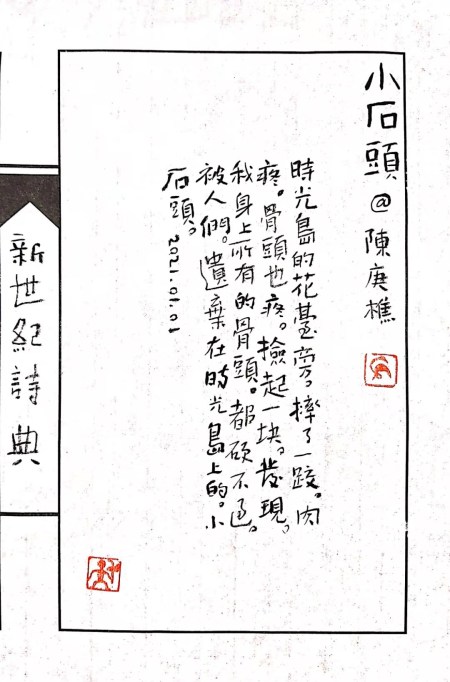 小石頭@陳庚樵
時光島的花臺旁。摔了一跤。肉
疼。骨頭也疼。撿起一塊。發現。
我身上所有的骨頭。都硕不過。
被人們。遺棄在時光島上的。小
石頭。2021.01.01
新世紀詩典